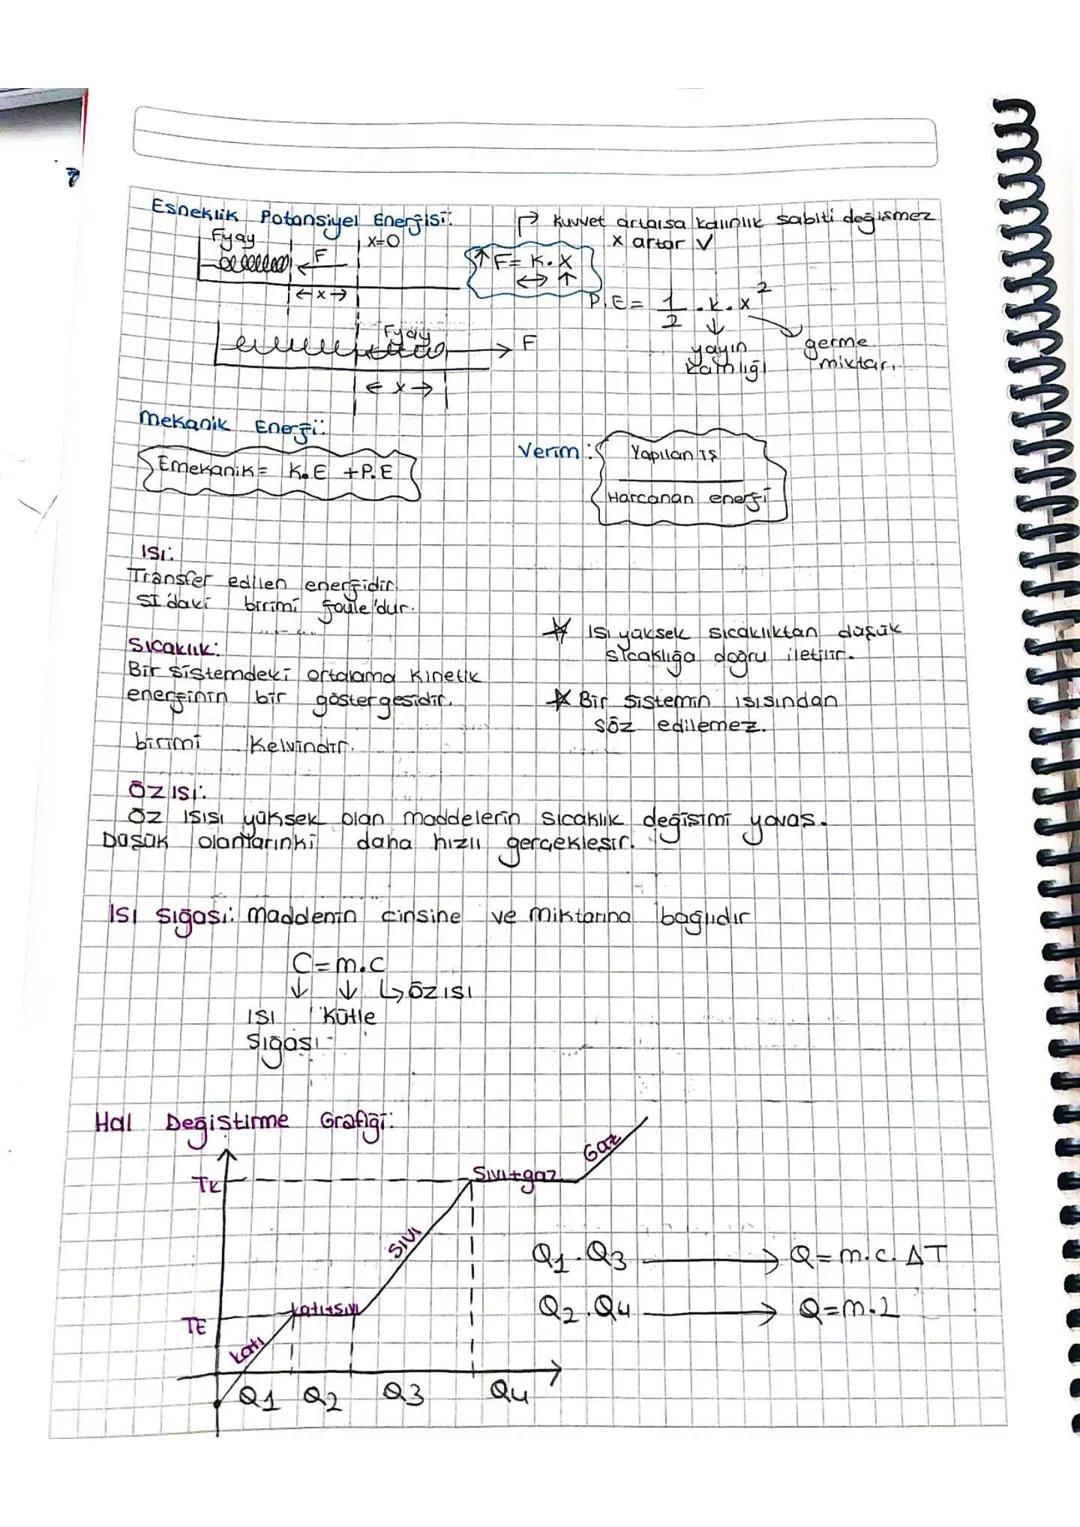 Esneklik Potansiyel Enerjisi:
Fyay
F
x=0
x
Fyay
F
x
Kuvvet artarsa kalınlık sabiti değişmez
x artar √
↑F= K.x
↔ ↑
P.E= 1/2 .k.x²
yayın kalınlığı
germe miktarı
Mekanik Enerji:
Emekanik= K.E +P.E
Verim:
Yapılan iş
Harcanan enerji
ISI:
Transfer edilen enerjidir.
SI'daki birimi joule'dur.
Sıcaklık:
Bir sistemdeki ortalama kinetik
enerjinin bir göstergesidir.
birimi Kelvindir.
★ Isı yüksek sıcaklıktan düşük
sıcaklığa doğru iletilir.
★ Bir sistemin ısısından
söz edilemez.
ÖZ ISI:
ÖZ ISISI yüksek olan maddelerin sıcaklık değişimi yavaş.
Düşük olanlarınki daha hızlı gerçekleşir.
ISI sığası: maddenin cinsine ve miktarına bağlıdır
C=m.c
↓ ↓ ↳özısı
ISI Kütle
sığası
Hal Değiştirme Grafiği:
TK
Sıvı+gaz
Gaz
Sıvı
TE
katı+sıvı
katı
Q1 Q2 Q3 Q4
Q1.Q3 → Q=m.c.ΔT
Q2.Q4 → Q=m.L